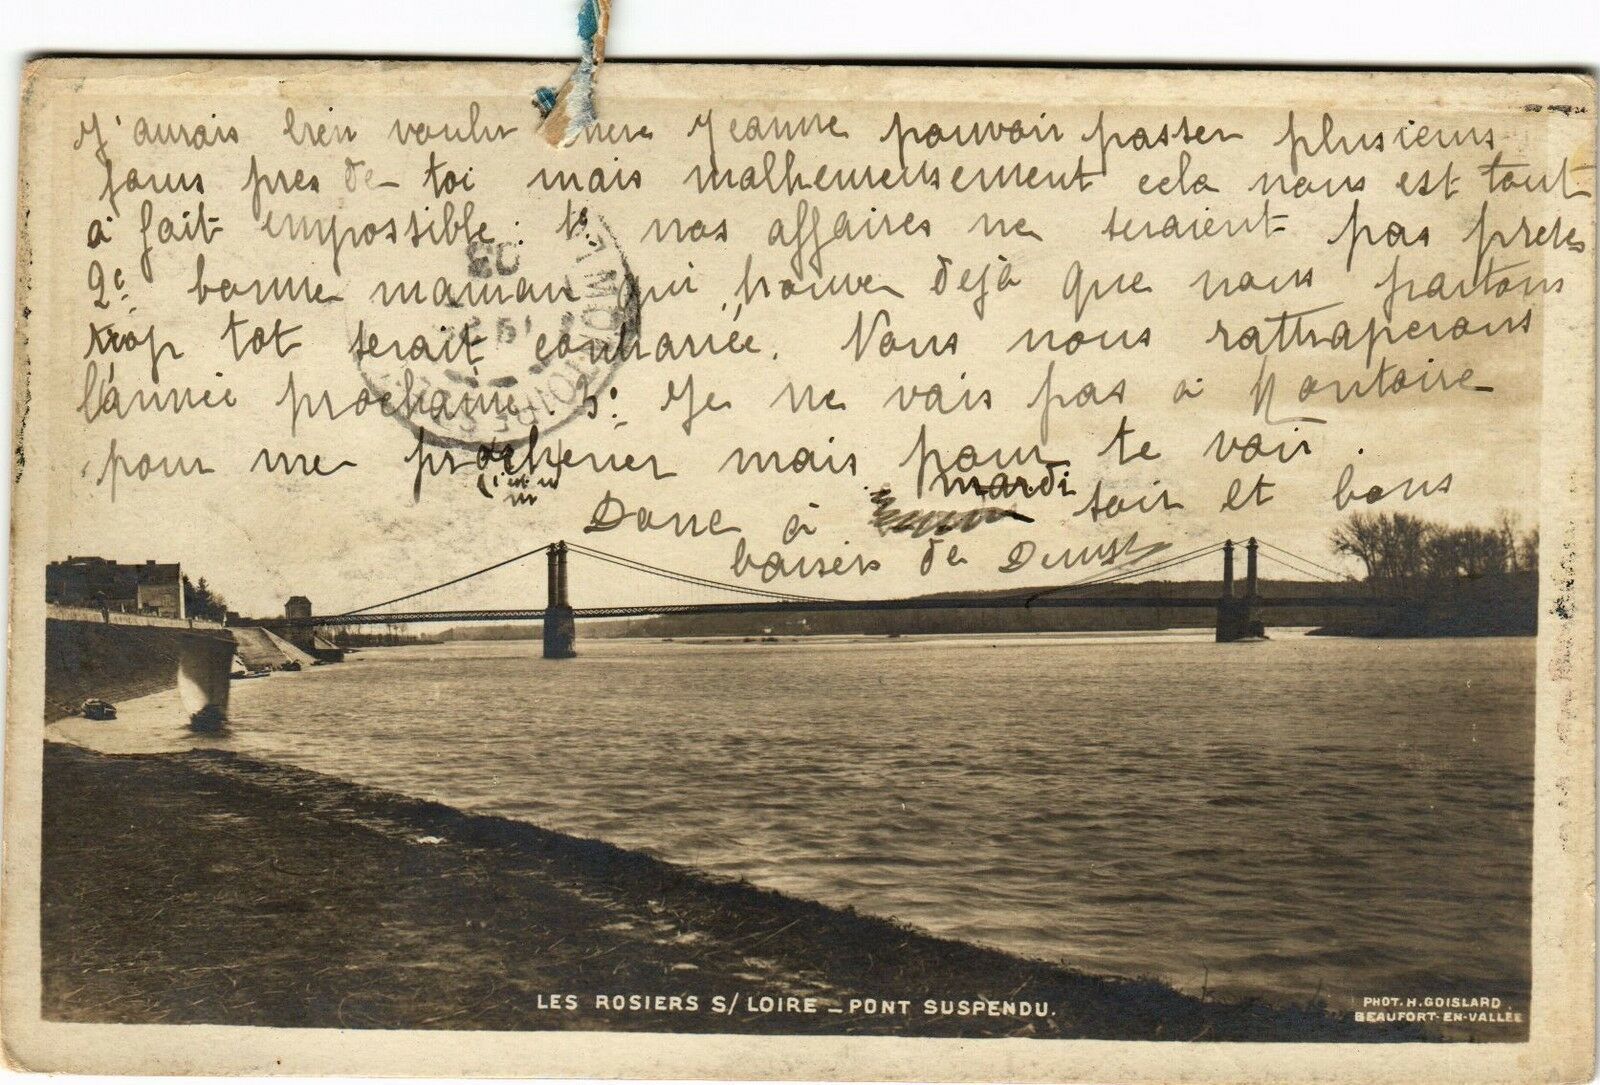 J'aurais bien voulu chere Jeanne pouvoir passer plusieurs
jours pres de toi mais malheureusement cela nous est tout
à fait impossible : 1º nos affaires ne seraient pas pretes
2º bonne maman qui trouve dejà que nous partons
trop tot serait contrariée. Nous nous rattraperons
l'année prochaine. 3º Je ne vais pas à Montoire
pour me
mais pour te voir.
mardi
Donc à soir et bons
baisers de Denise
03
MONTOIRE
LES ROSIERS S/ LOIRE _ PONT SUSPENDU.
PHOT. H. GOISLARD.
BEAUFORT-EN-VALLÉE